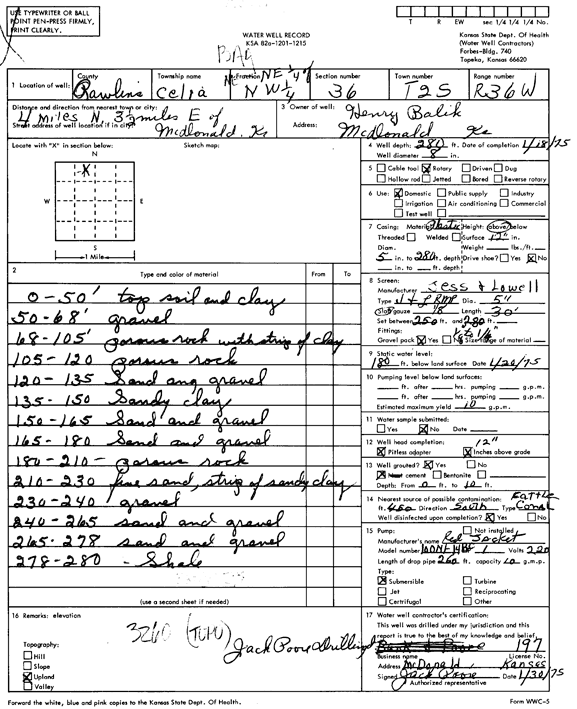 USE TYPEWRITER OR BALL
POINT PEN-PRESS FIRMLY,
PRINT CLEARLY.
WATER WELL RECORD
KSA 82a-1201-1215
T R EW sec 1/4 1/4 1/4 No.
Kansas State Dept. Of Health
(Water Well Contractors)
Forbes-Bldg. 740
Topeka, Kansas 66620
1 Location of well: County Rawlins Township name Celia Fraction NE 1/4 NW 1/4 Section number 36 Town number T2S Range number R36W
Distance and direction from nearest town or city: 4 miles N, 3½ miles E of
Street address of well location if in city: McDonald, Ks
3 Owner of well: Henry Balik
Address: McDonald Ks
Locate with "X" in section below:
Sketch map:
N
X
W E
S
1 Mile
4 Well depth: 280 ft. Date of completion 1/18/75
Well diameter 8 in.
5 Cable tool X Rotary Driven Dug
Hollow rod Jetted Bored Reverse rotary
6 Use: X Domestic Public supply Industry
Irrigation Air conditioning Commercial
Test well
7 Casing: Material Plastic Height: above/below
Threaded Welded Surface 12" in.
Diam. Weight lbs./ft.
5 in. to 280 ft. depth Drive shoe? Yes X No
in. to ft. depth
8 Screen:
Manufacturer Jess & Lowell
Dia. 5"
Slot/gauze 1/8 Length 30'
Set between 250 ft. and 280 ft.
Fittings:
Gravel pack X Yes No Size range of material
9 Static water level:
180 ft. below land surface Date 1/20/75
10 Pumping level below land surfaces:
ft. after hrs. pumping g.p.m.
ft. after hrs. pumping g.p.m.
Estimated maximum yield 10 g.p.m.
11 Water sample submitted:
Yes X No Date
12 Well head completion: 12"
X Pitless adapter X Inches above grade
13 Well grouted? X Yes No
X Neat cement Bentonite
Depth: From 0 ft. to 10 ft.
14 Nearest source of possible contamination: Cattle
ft. 450 Direction South Type Corral
Well disinfected upon completion? X Yes No
15 Pump: Not installed
Manufacturer's name Red Jacket
Model number 1 Volts 220
Length of drop pipe 260 ft. capacity 10 g.p.m.
Type:
X Submersible Turbine
Jet Reciprocating
Certrifugal Other
2 Type and color of material From To
0-50' top soil and clay
50-68' gravel
68-105' porous rock with strip of clay
105-120 porous rock
120-135 Sand and gravel
135-150 Sandy clay
150-165 Sand and gravel
165-180 Sand and gravel
180-210- porous rock
210-230 fine sand, strip of sandy clay
230-240 gravel
240-265 sand and gravel
265-278 sand and gravel
278-280 - Shale
(use a second sheet if needed)
16 Remarks: elevation
3260 (TOPO)
Topography:
Hill
Slope
X Upland
Valley
17 Water well contractor's certification:
This well was drilled under my jurisdiction and this
report is true to the best of my knowledge and belief.
Jack Poore Drilling 197
Business name License No.
Address McDonald, Kansas
Signed Jack Poore Date 1/30/75
Authorized representative
Forward the white, blue and pink copies to the Kansas State Dept. Of Health.
Form WWC-5